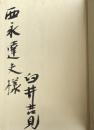 西永達夫様
臼井吉見